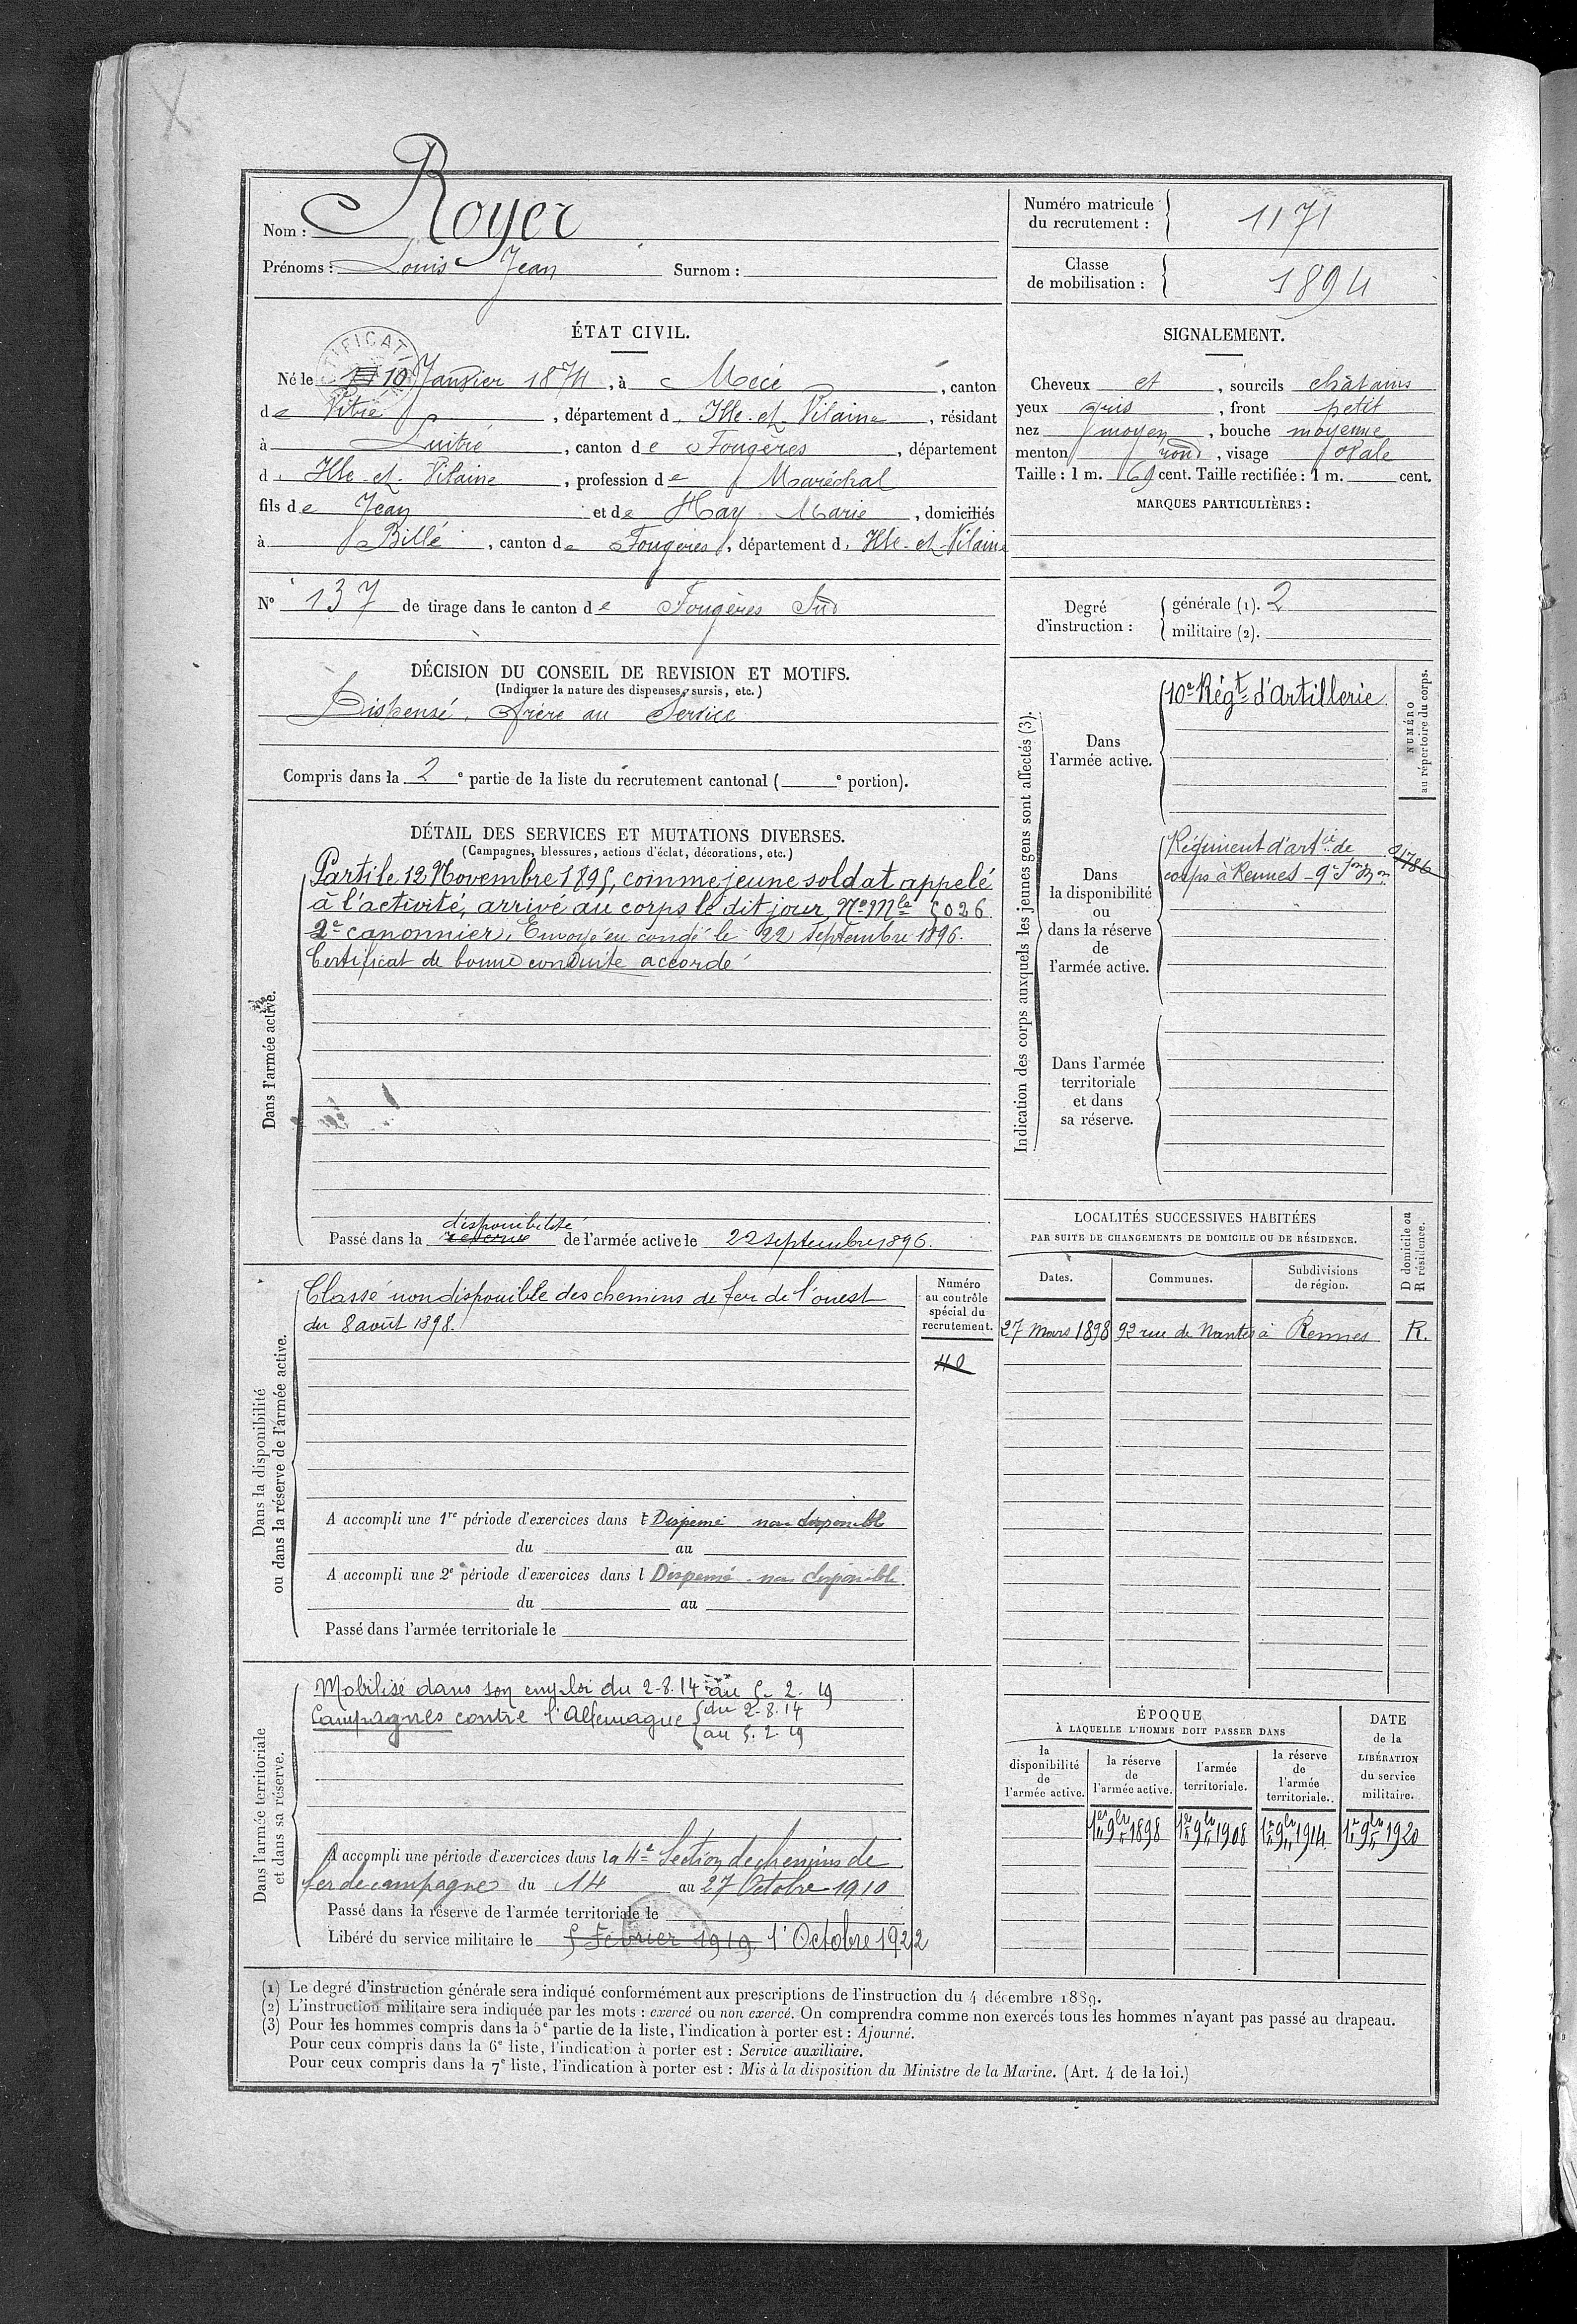 Nom : Royer
Prénoms : Louis Jean Surnom :
Numéro matricule
du recrutement : 1171
Classe
de mobilisation : 1894
ÉTAT CIVIL.
Né le 10 Janvier 1874, à Mecé, canton
de Vitré, département d. Ille-et-Vilaine, résidant
à Luitré, canton de Fougères, département
d. Ille-et-Vilaine, profession de Maréchal
fils de Jean et de Hay Marie, domiciliés
à Billé, canton de Fougères, département d. Ille-et-Vilaine
N° 137 de tirage dans le canton de Fougères Sud
SIGNALEMENT.
Cheveux et, sourcils châtains
yeux gris, front petit
nez moyen, bouche moyenne
menton rond, visage ovale
Taille : 1 m. 69 cent. Taille rectifiée : 1 m. cent.
MARQUES PARTICULIÈRES :
Degré
d'instruction :
générale (1). 2
militaire (2).
DÉCISION DU CONSEIL DE REVISION ET MOTIFS.
(Indiquer la nature des dispenses, sursis, etc.)
Dispensé. Frère au Service
Compris dans la 2e partie de la liste du recrutement cantonal ( e portion).
DÉTAIL DES SERVICES ET MUTATIONS DIVERSES.
(Campagnes, blessures, actions d'éclat, décorations, etc.)
Dans l'armée active.
Parti le 12 Novembre 1895, comme jeune soldat appelé
à l'activité, arrivé au corps le dit jour, No Mle 5026
2e canonnier. Envoyé en congé le 22 septembre 1896.
Certificat de bonne conduite accordé
Passé dans la réserve disponibilité de l'armée active le 22 septembre 1896.
Indication des corps auxquels les jeunes gens sont affectés (3).
NUMÉRO
au répertoire du corps.
Dans
l'armée active.
10e Régt d'Artillerie
Dans
la disponibilité
ou
dans la réserve
de
l'armée active.
Régiment d'artie de
corps à Rennes
Dans l'armée
territoriale
et dans
sa réserve.
Dans la disponibilité
ou dans la réserve de l'armée active.
Classé non disponible des chemins de fer de l'ouest
du 8 août 1898.
Numéro
au contrôle
spécial du
recrutement.
A accompli une 1re période d'exercices dans l Dispensé non disponible
du au
A accompli une 2e période d'exercices dans l Dispensé non disponible
du au
Passé dans l'armée territoriale le
LOCALITÉS SUCCESSIVES HABITÉES
PAR SUITE DE CHANGEMENTS DE DOMICILE OU DE RÉSIDENCE.
D domicile ou
R résidence.
Dates. Communes. Subdivisions
de région.
27 mars 1898 92 rue de Nantes à Rennes R.
Dans l'armée territoriale
et dans sa réserve.
Mobilisé dans son emploi du 2-8.14 au 5-2-19
Campagnes contre l'Allemagne du 2-8.14
au 5.2.19
A accompli une période d'exercices dans la 4e Section de chemins de
fer de campagne du 14 au 27 Octobre 1910
Passé dans la réserve de l'armée territoriale le
Libéré du service militaire le 5 Février 1919 1' Octobre 1922
ÉPOQUE
À LAQUELLE L'HOMME DOIT PASSER DANS
DATE
de la
LIBÉRATION
du service
militaire.
la
disponibilité
de
l'armée active.
la réserve
de
l'armée active.
l'armée
territoriale.
la réserve
de
l'armée
territoriale.
1er 9bre 1898 1er 9bre 1908 1er 9bre 1914 1er 9bre 1920
(1) Le degré d'instruction générale sera indiqué conformément aux prescriptions de l'instruction du 4 décembre 1889.
(2) L'instruction militaire sera indiquée par les mots : exercé ou non exercé. On comprendra comme non exercés tous les hommes n'ayant pas passé au drapeau.
(3) Pour les hommes compris dans la 5e partie de la liste, l'indication à porter est : Ajourné.
Pour ceux compris dans la 6e liste, l'indication à porter est : Service auxiliaire.
Pour ceux compris dans la 7e liste, l'indication à porter est : Mis à la disposition du Ministre de la Marine. (Art. 4 de la loi.)